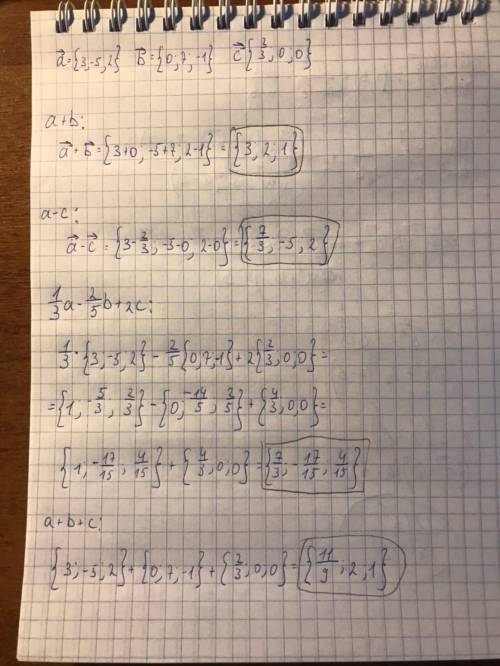 a⃗={3,-5,2} b⃗={0;7;-1} c⃗{2/3,0,0}
a+b:
a⃗+b⃗={3+0,-5+7,2-1}={3,2,1}
a-c:
a⃗-c⃗={3-2/3,-5-0,2-0}={7/3,-5,2}
1/3a-2/5b+2c:
1/3·{3,-5,2}-2/5{0,7,-1}+2{2/3,0,0}=
={1,-5/3,2/3}-{0,-14/5,2/5}+{4/3,0,0}=
{1,-17/15,4/15}+{4/3,0,0}={7/3,-17/15,4/15}
a+b+c:
{3;-5;2}+{0,7,-1}+{2/3,0,0}={11/9;2,1}